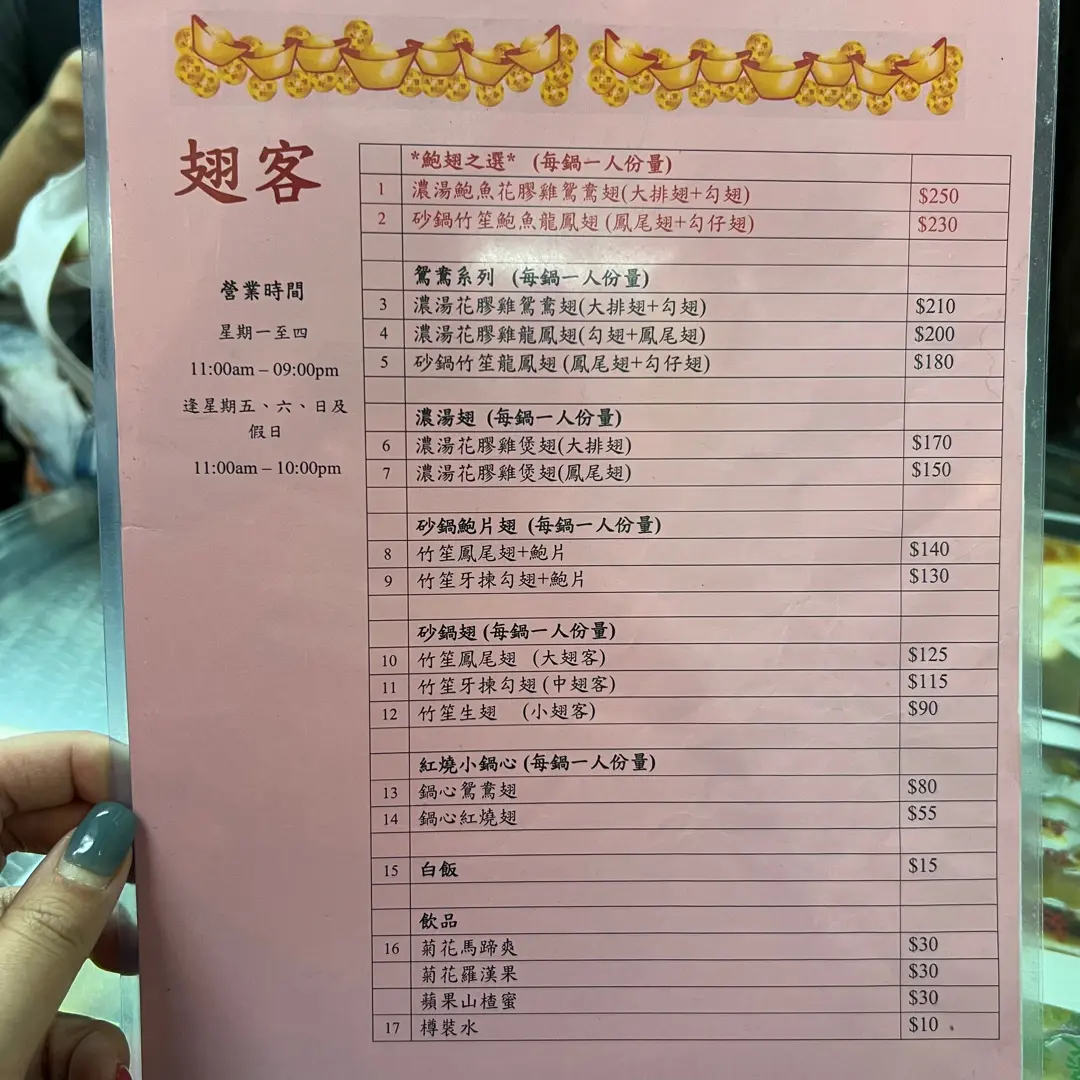 翅客
營業時間
星期一至四
11:00am – 09:00pm
逢星期五、六、日及
假日
11:00am – 10:00pm
*鮑翅之選* (每鍋一人份量)
1 濃湯鮑魚花膠雞鴛鴦翅(大排翅+勾翅) $250
2 砂鍋竹笙鮑魚龍鳳翅 (鳳尾翅+勾仔翅) $230
鴛鴦系列 (每鍋一人份量)
3 濃湯花膠雞鴛鴦翅(大排翅+勾翅) $210
4 濃湯花膠雞龍鳳翅(勾翅+鳳尾翅) $200
5 砂鍋竹笙龍鳳翅 (鳳尾翅+勾仔翅) $180
濃湯翅 (每鍋一人份量)
6 濃湯花膠雞煲翅(大排翅) $170
7 濃湯花膠雞煲翅(鳳尾翅) $150
砂鍋鮑片翅 (每鍋一人份量)
8 竹笙鳳尾翅+鮑片 $140
9 竹笙牙揀勾翅+鮑片 $130
砂鍋翅 (每鍋一人份量)
10 竹笙鳳尾翅 (大翅客) $125
11 竹笙牙揀勾翅 (中翅客) $115
12 竹笙生翅 (小翅客) $90
紅燒小鍋心 (每鍋一人份量)
13 鍋心鴛鴦翅 $80
14 鍋心紅燒翅 $55
15 白飯 $15
飲品
16 菊花馬蹄爽 $30
菊花羅漢果 $30
蘋果山楂蜜 $30
17 樽裝水 $10